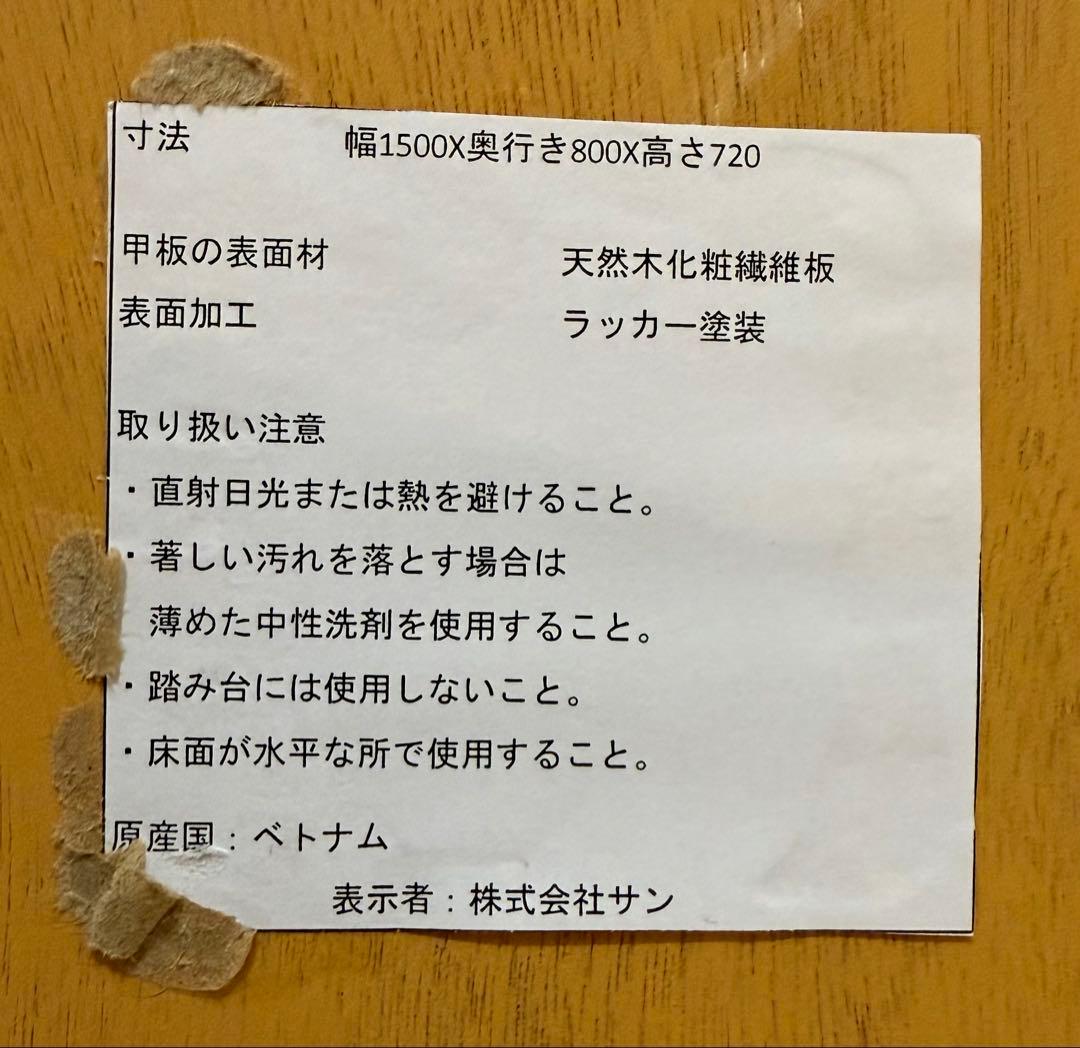 寸法 幅1500X奥行き800X高さ720
甲板の表面材 天然木化粧繊維板
表面加工 ラッカー塗装
取り扱い注意
・直射日光または熱を避けること。
・著しい汚れを落とす場合は
薄めた中性洗剤を使用すること。
・踏み台には使用しないこと。
・床面が水平な所で使用すること。
原産国：ベトナム
表示者：株式会社サン